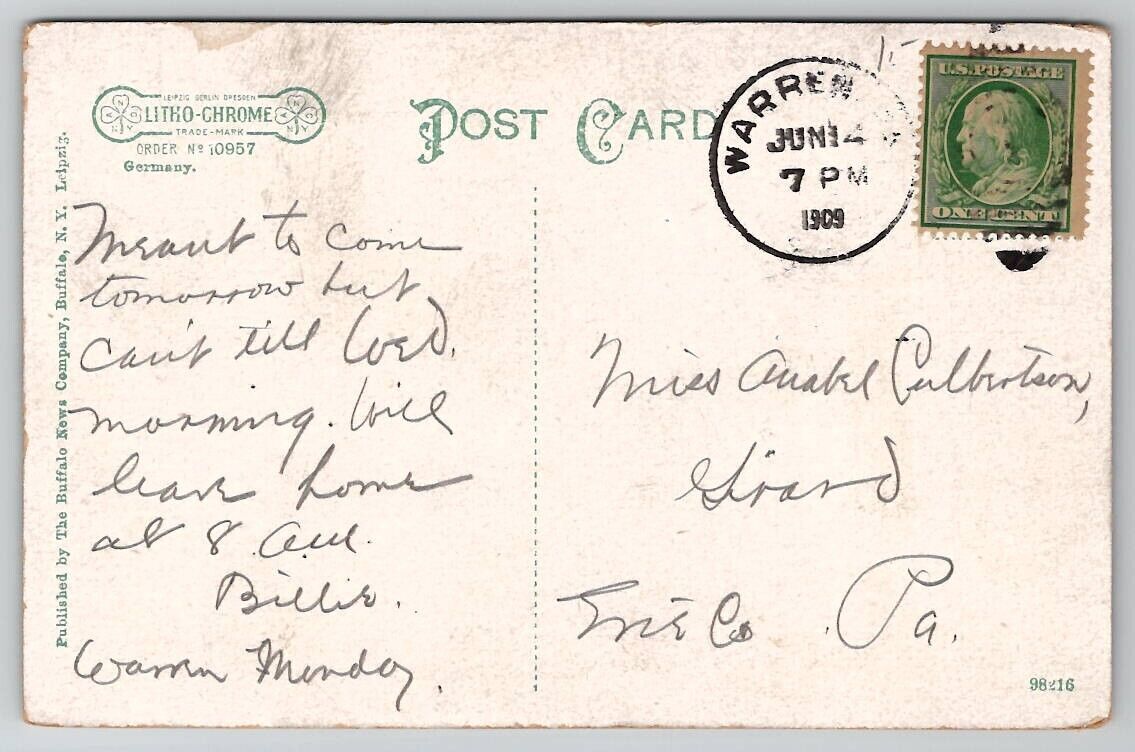 LEIPZIG BERLIN DRESDEN
LITHO-CHROME
TRADE-MARK
ORDER Nº 10957
Germany.
POST CARD
WARREN
JUN 14
7 PM
1909
U.S.POSTAGE
ONE CENT
Published by The Buffalo News Company, Buffalo, N. Y. Leipzig.
Meant to come
tomorrow but
can't till Wed.
morning. Will
leave home
at 8 AM.
Billie.
Warren Monday.
Miss Anabel Culbertson,
Girard
Erie Co. Pa.
98216